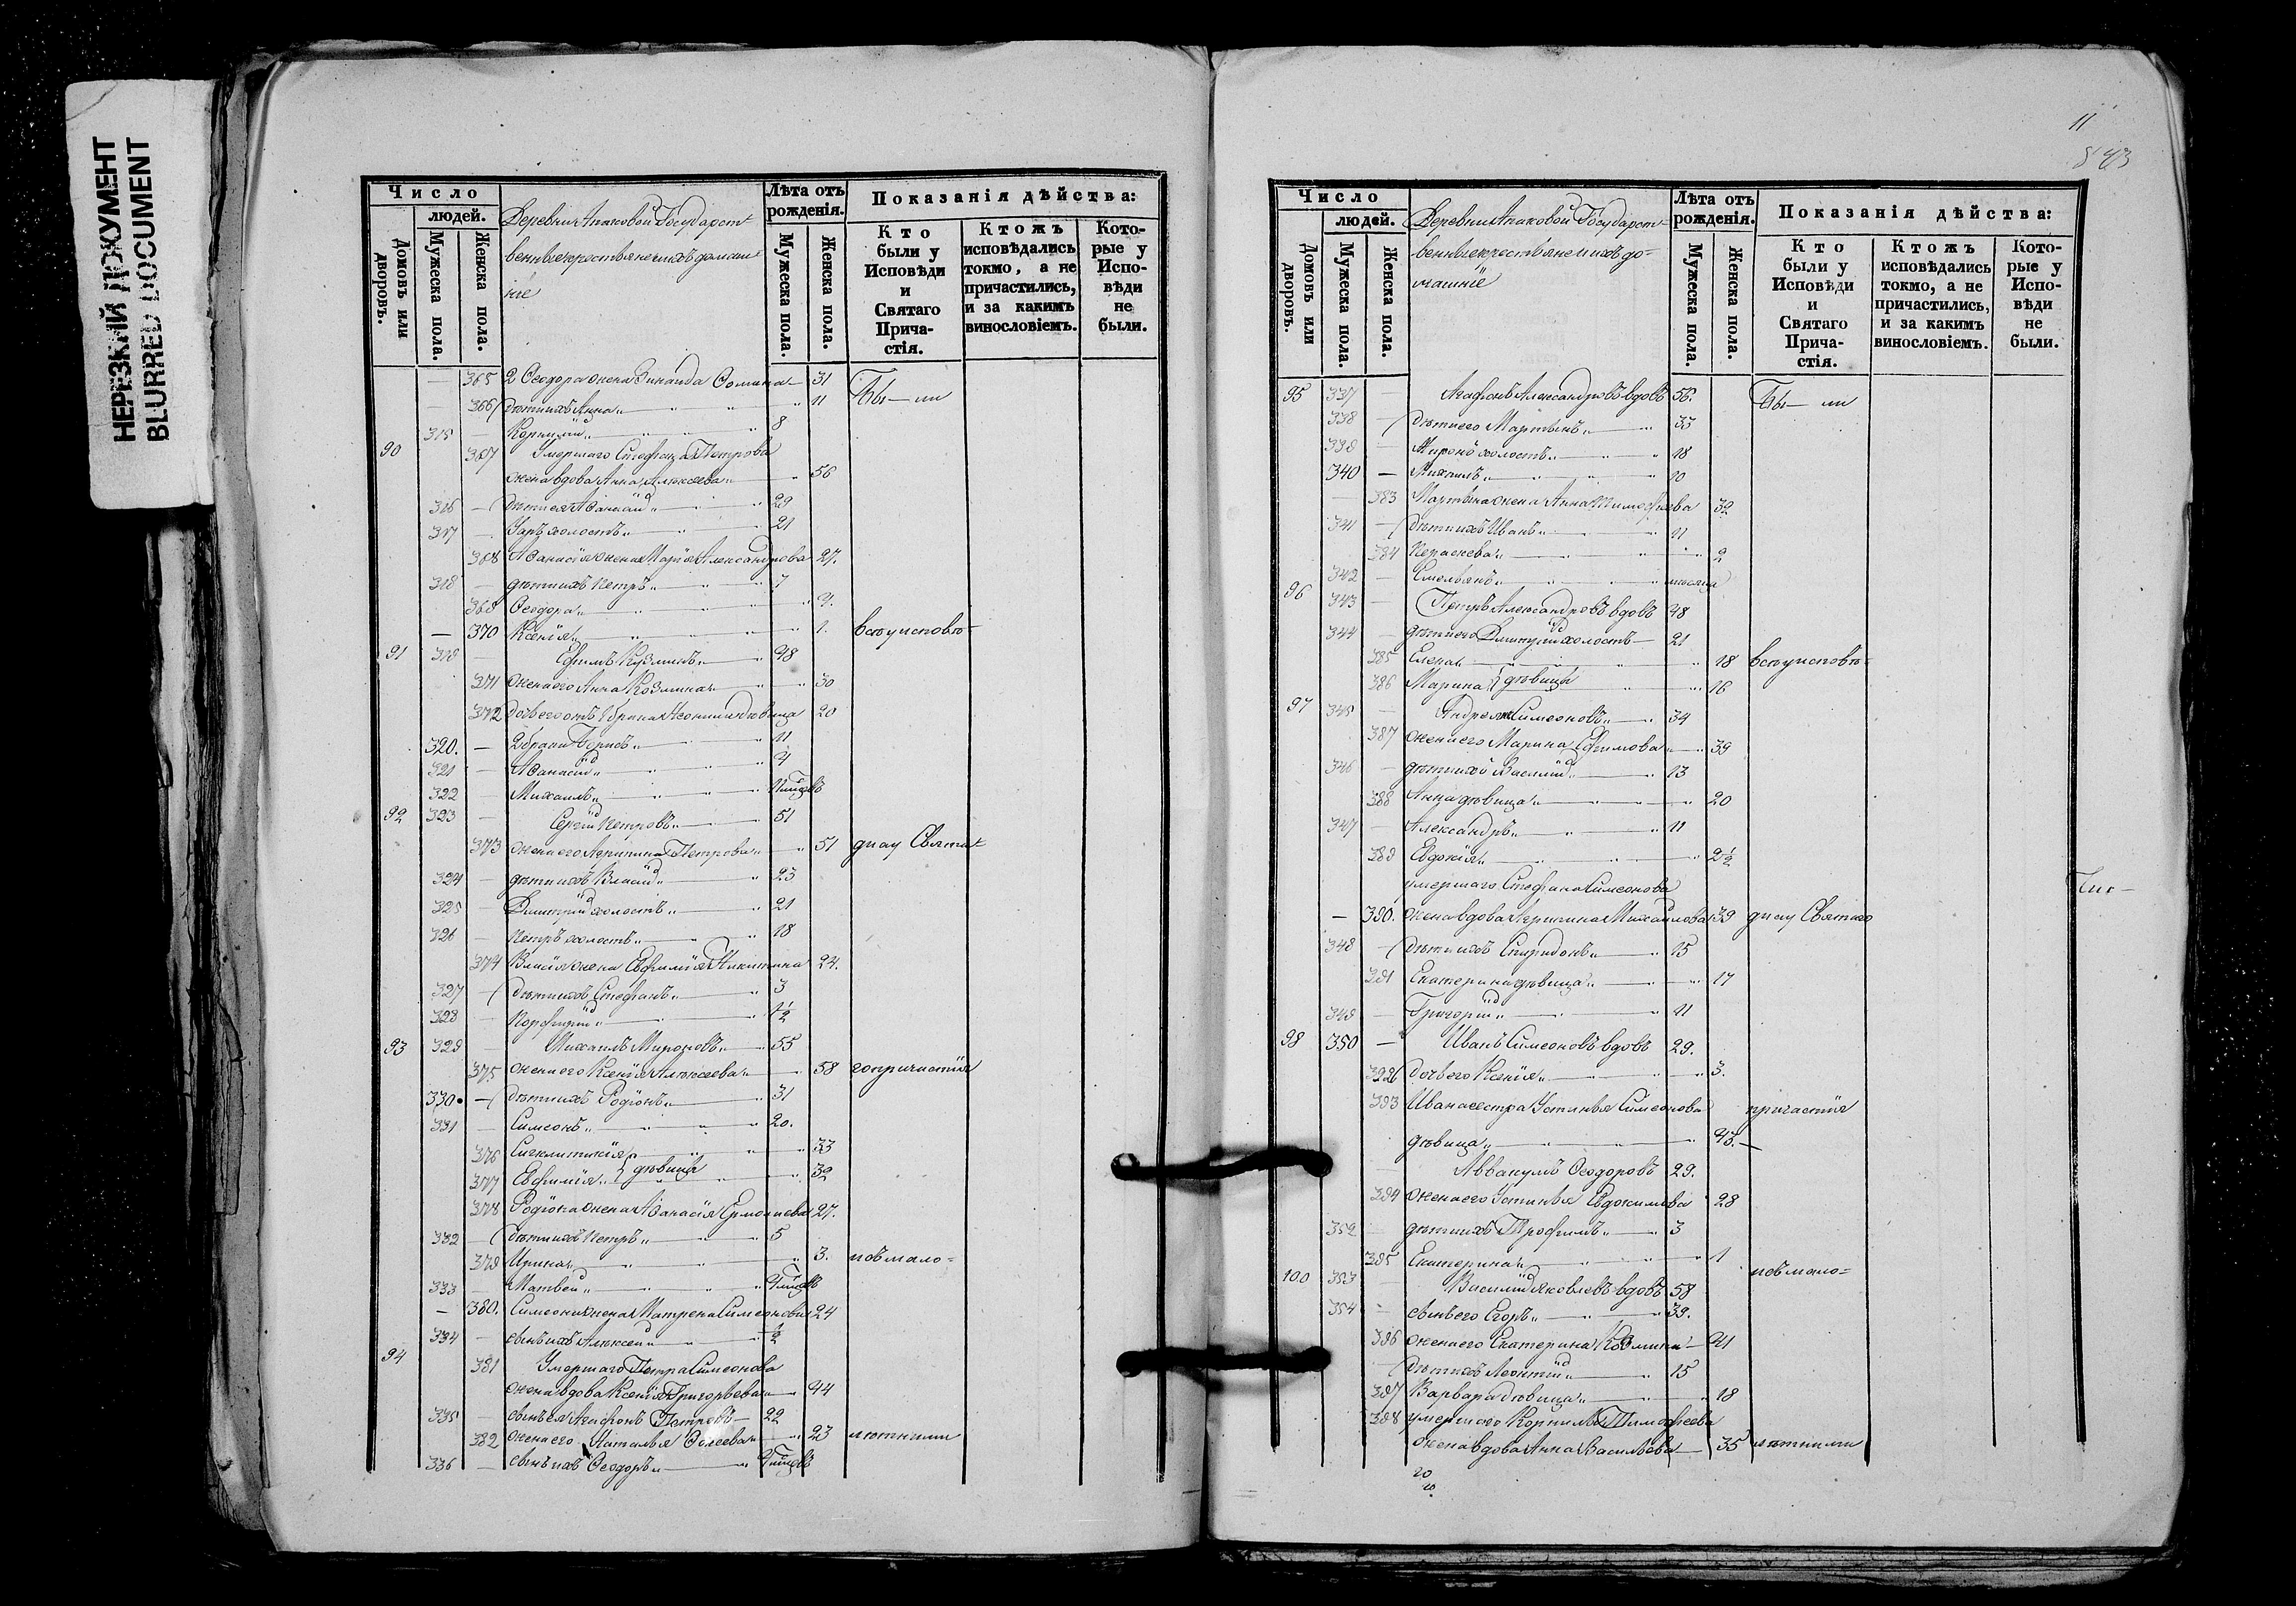 НЕРЕЗКИЙ ДОКУМЕНТ
BLURRED DOCUMENT
Число
людей.
Домовъ или дворовъ.
Мужеска пола.
Женска пола.
Деревни Апаковой Государст-
венные крестьяне и ихъ домаш-
ніе
Лѣта отъ рожденія.
Мужеска пола.
Женска пола.
Показанія дѣйства:
Кто были у Исповѣди и Святаго Причастія.
Ктожъ исповѣдались токмо, а не причастились, и за какимъ винословіемъ.
Которые у Исповѣди не были.
— 365 2 Ѳеодора жена Зинаида Ѳомина — 31 Бы — ли
— 366 дѣти ихъ Анна 11
315 — Корнилій 8
90 367 Умершаго Стефана Петрова
жена вдова Анна Алексѣева 56
316 — дѣти ея Аѳанасій 29
317 — Уаръ холостъ 21
368 Аѳанасія жена Марія Александрова 27.
318 — дѣти ихъ Петръ 7
369 Ѳеодора 4.
— 370 Ксенія 1. всѣ у исповѣ-
91 319 — Ефимъ Козминъ 48
371 жена его Анна Козмина 30
372 дочь его отъ 1 брака Неонила дѣвица 20
320. — 2 брака Борисъ 11
321 — Аѳанасій 4
322 — Михаилъ
92 323 — Сергій Петровъ 51
373 жена его Агрипина Петрова 51 ди и у Свята-
324 — дѣти ихъ Власій 23
325 — Димитрій холостъ 21
326 — Петръ холостъ 18
374 Власія жена Евфимія Никитина 24.
327 — дѣти ихъ Стефанъ 3
328 — Порфирій 1/2
93 329 — Михаилъ Мироновъ 55
375 жена его Ксенія Алексѣева 58 го причастія
330. — дѣти ихъ Родіонъ 31
331 — Симеонъ 20.
376 Сигклитикія 33
377 Евфимія } дѣвицы 32
378 Родіона жена Аѳанасія Ермолаева 27.
332 — дѣти ихъ Петръ 5
379 Ирина 3. и въ мало-
333 — Матвей
— 380. Симеона жена Матрена Симеонова 24
334 — сынъ ихъ Алексей 1/2
94 381 Умершаго Петра Симеонова
жена вдова Ксенія Григорьева 44
335 — сынъ ея Агафонъ Петровъ — 22
382 жена его Наталья 23 лѣтними
336 — сынъ ихъ Ѳеодоръ
11
843
Число
людей.
Домовъ или дворовъ.
Мужеска пола.
Женска пола.
Деревни Апаковой Государст-
венные крестьяне и ихъ до-
машніе
Лѣта отъ рожденія.
Мужеска пола.
Женска пола.
Показанія дѣйства:
Кто были у Исповѣди и Святаго Причастія.
Ктожъ исповѣдались токмо, а не причастились, и за какимъ винословіемъ.
Которые у Исповѣди не были.
95 337 — Агафонъ Александровъ вдовъ 56. Бы — ли
338 — дѣти его Мартынъ 33
339 — Миронъ холостъ 18
340 — Михаилъ 10
— 383 Мартына жена Анна Тимофѣева 32
341 — дѣти ихъ Иванъ 11
384 Параскева 2
342 — Емельянъ
96 343 — Петръ Александровъ вдовъ 48
344 — дѣти его Димитрій холостъ — 21
385 Елена 18 всѣ у исповѣ-
386 Марина } дѣвицы 16
97 345 — Андрей Симеоновъ 34
387 жена его Марина Ефимова 39
346 — дѣти ихъ Василій 13
388 Анна дѣвица 20
347 — Александръ 11
389 Евдокія 2 1/2
умершаго Стефана Симеонова
— 390. жена вдова Агрипина Михайлова 39 ди и у Святаго
348 — дѣти ихъ Спиридонъ 15
391 Екатерина дѣвица 17
349 — Григорій 11
98 350 — Иванъ Симеоновъ вдовъ 29.
392 дочь его Ксенія 3.
393 Ивана сестра Устинья Симеонова причастія
дѣвица 43. —
Аввакумъ Ѳеодоровъ 29.
394 жена его Устинья Евдокимова 28
352 дѣти ихъ Трофимъ 3
395 Екатерина 1
и въ мало-
100 353 — Василій Яковлевъ вдовъ 58
354 — сынъ его Егоръ 39.
396 жена его Екатерина Козмина — 41
— дѣти ихъ Леонтій 15
397 Варвара дѣвица 18
398 умершаго Корнилья Тимофеева
жена вдова Анна Васильева — 35 лѣтними